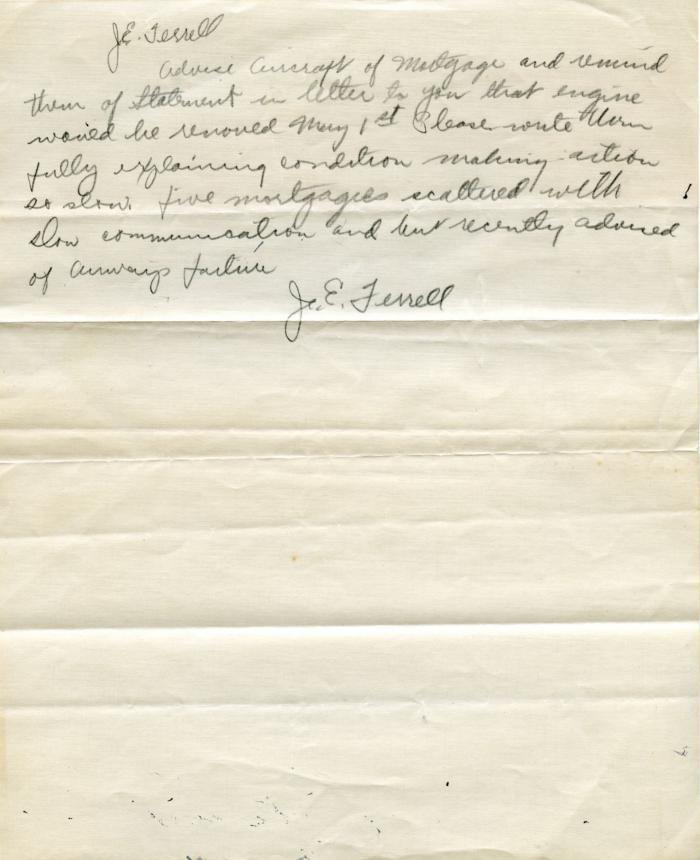 J.E. Terrell
Advise Aircraft of Mortgage and remind
them of Statement in letter to you that engine
would be removed May 1st Please write them
fully explaining condition making action
so slow. five mortgages scattered with
slow communication and but recently advised
of Airways failure
J.E. Terrell